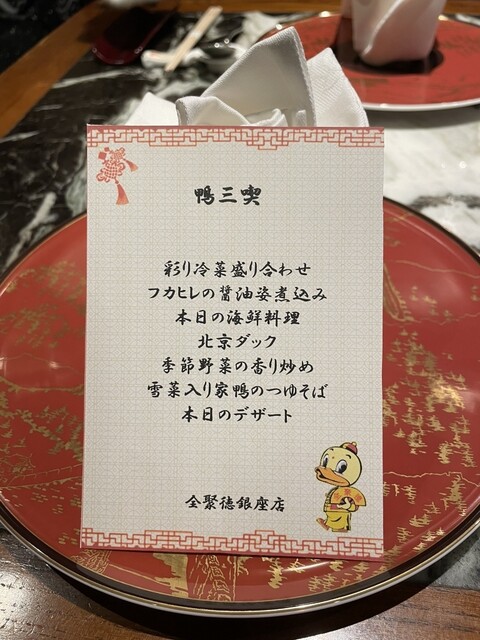 鴨三喫
彩り冷菜盛り合わせ
フカヒレの醤油姿煮込み
本日の海鮮料理
北京ダック
季節野菜の香り炒め
雪菜入り家鴨のつゆそば
本日のデザート
全聚徳銀座店